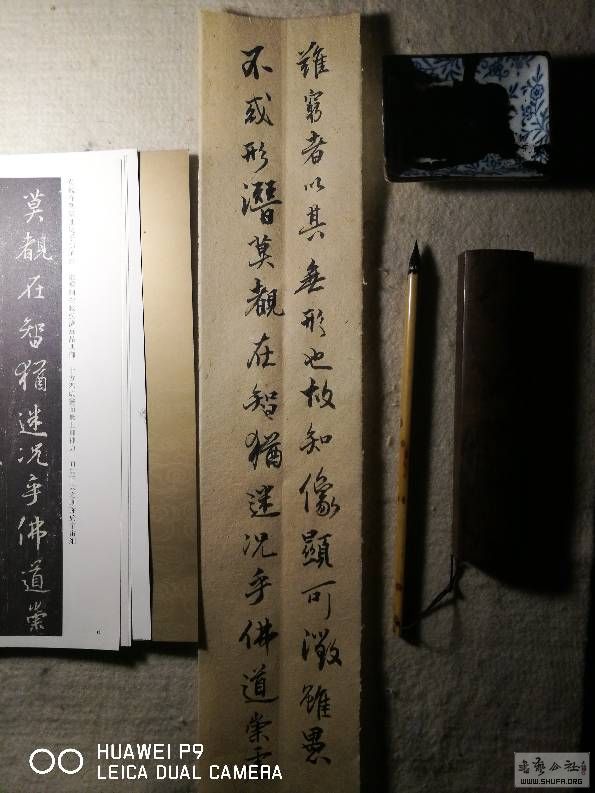 難窮者以其無形也故知像顯可徵雖愚
不惑形潛莫覩在智猶迷况乎佛道崇
莫覩在智猶迷况乎佛道崇
6
HUAWEI P9
LEICA DUAL CAMERA
書藝公社
WWW.SHUFA.ORG